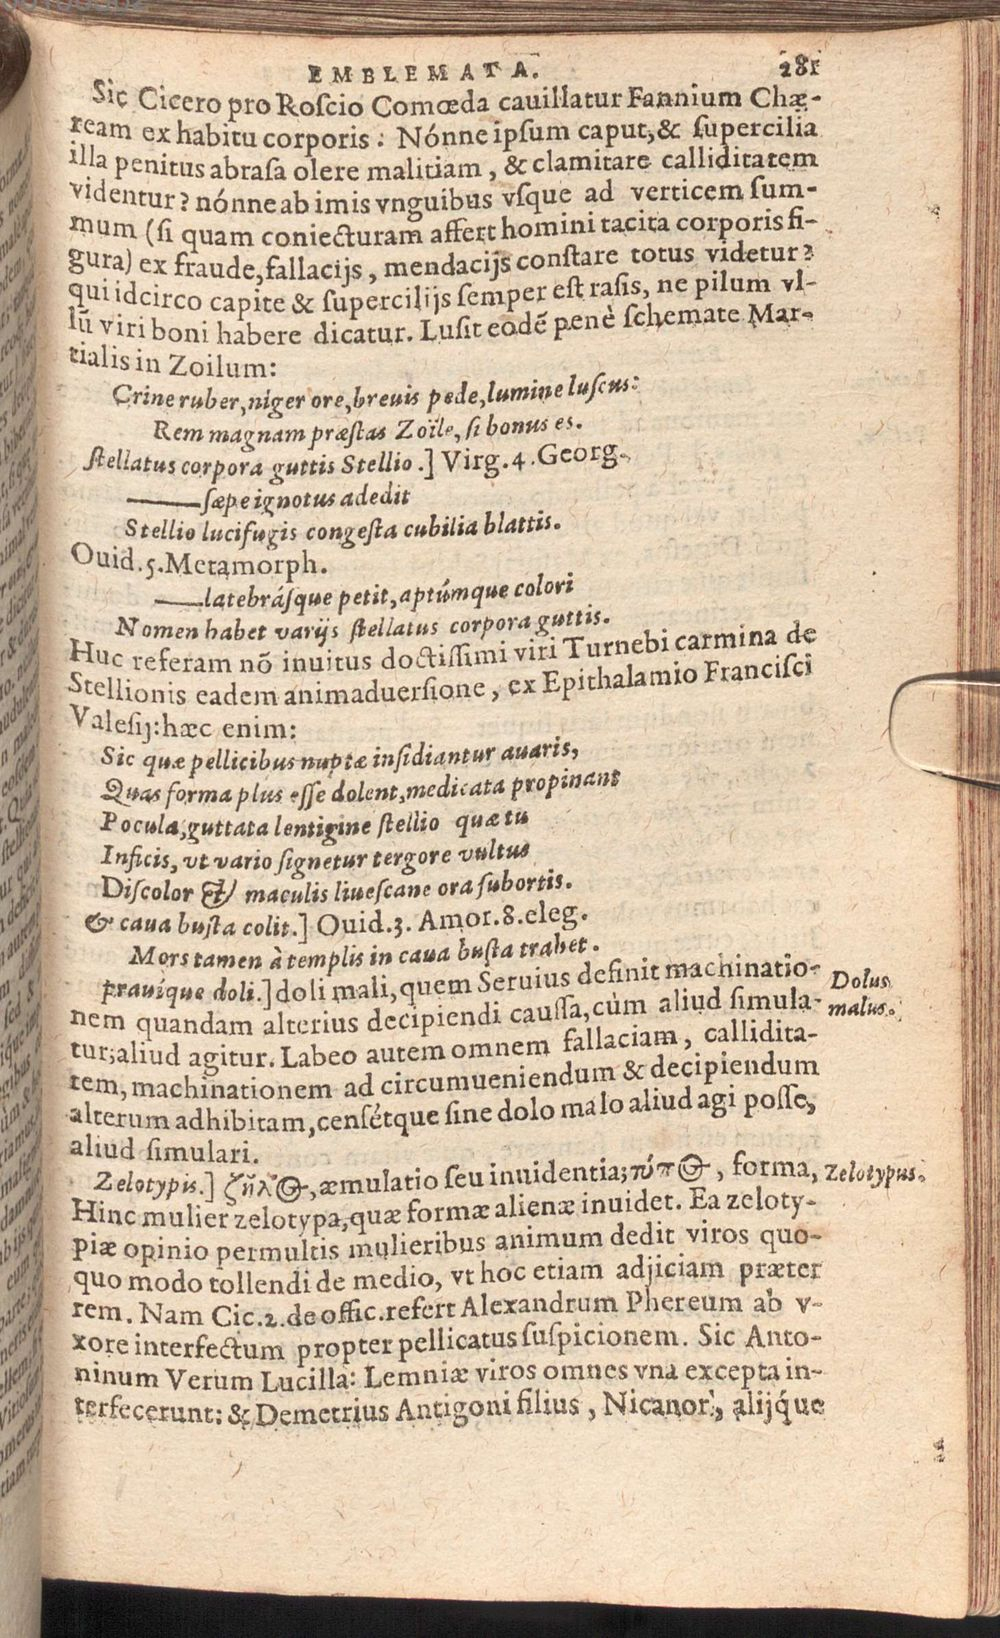 EMBLEMATA. 281
Sic Cicero pro Roſcio Comœda cauillatur Fannium Chæ-
ream ex habitu corporis: Nónne ipſum caput, & ſupercilia
illa penitus abraſa olere malitiam, & clamitare calliditatem
videntur? nónne ab imis vnguibus vſque ad verticem ſum-
mum (ſi quam coniecturam affert homini tacita corporis fi-
gura) ex fraude, fallacijs, mendacijs conſtare totus videtur?
qui idcirco capite & ſupercilijs ſemper eſt raſis, ne pilum vl-
lũ viri boni habere dicatur. Luſit eodẽ penè ſchemate Mar-
tialis in Zoilum:
Crine ruber, niger ore, breuis pede, lumine luſcus:
Rem magnam præſtas Zoïle, ſi bonus es.
ſtellatus corpora guttis Stellio.] Virg. 4. Georg.
——ſæpe ignotus adedit
Stellio lucifugis congeſta cubilia blattis.
Ouid. 5. Metamorph.
——latebráſque petit, aptúmque colori
Nomen habet varijs ſtellatus corpora guttis.
Huc referam nõ inuitus doctiſſimi viri Turnebi carmina de
Stellionis eadem animaduerſione, ex Epithalamio Franciſci
Valeſij: hæc enim:
Sic quæ pellicibus nuptæ inſidiantur auaris,
Quas forma plus eſſe dolent, medicata propinant
Pocula, guttata lentigine ſtellio quæ tu
Inficis, vt vario ſignetur tergore vultus
Diſcolor & maculis liueſcane ora ſubortis.
& caua buſta colit.] Ouid. 3. Amor. 8. eleg.
Mors tamen à templis in caua buſta trahet.
prauique doli.] doli mali, quem Seruius definit machinatio-
Dolus
malus.
nem quandam alterius decipiendi cauſſa, cùm aliud ſimula-
tur; aliud agitur. Labeo autem omnem fallaciam, callidita-
tem, machinationem ad circumueniendum & decipiendum
alterum adhibitam, censétque ſine dolo malo aliud agi poſſe,
aliud ſimulari.
Zelotypis.] ζῆλος, æmulatio ſeu inuidentia; τύπος, forma,
Zelotypus.
Hinc mulier zelotypa, quæ formæ alienæ inuidet. Ea zeloty-
piæ opinio permultis mulieribus animum dedit viros quo-
quo modo tollendi de medio, vt hoc etiam adjiciam præter
rem. Nam Cic. 2. de offic. refert Alexandrum Phereum ab v-
xore interfectum propter pellicatus ſuſpicionem. Sic Anto-
ninum Verum Lucilla: Lemniæ viros omnes vna excepta in-
terfecerunt: & Demetrius Antigoni filius, Nicanor, alijq́ue